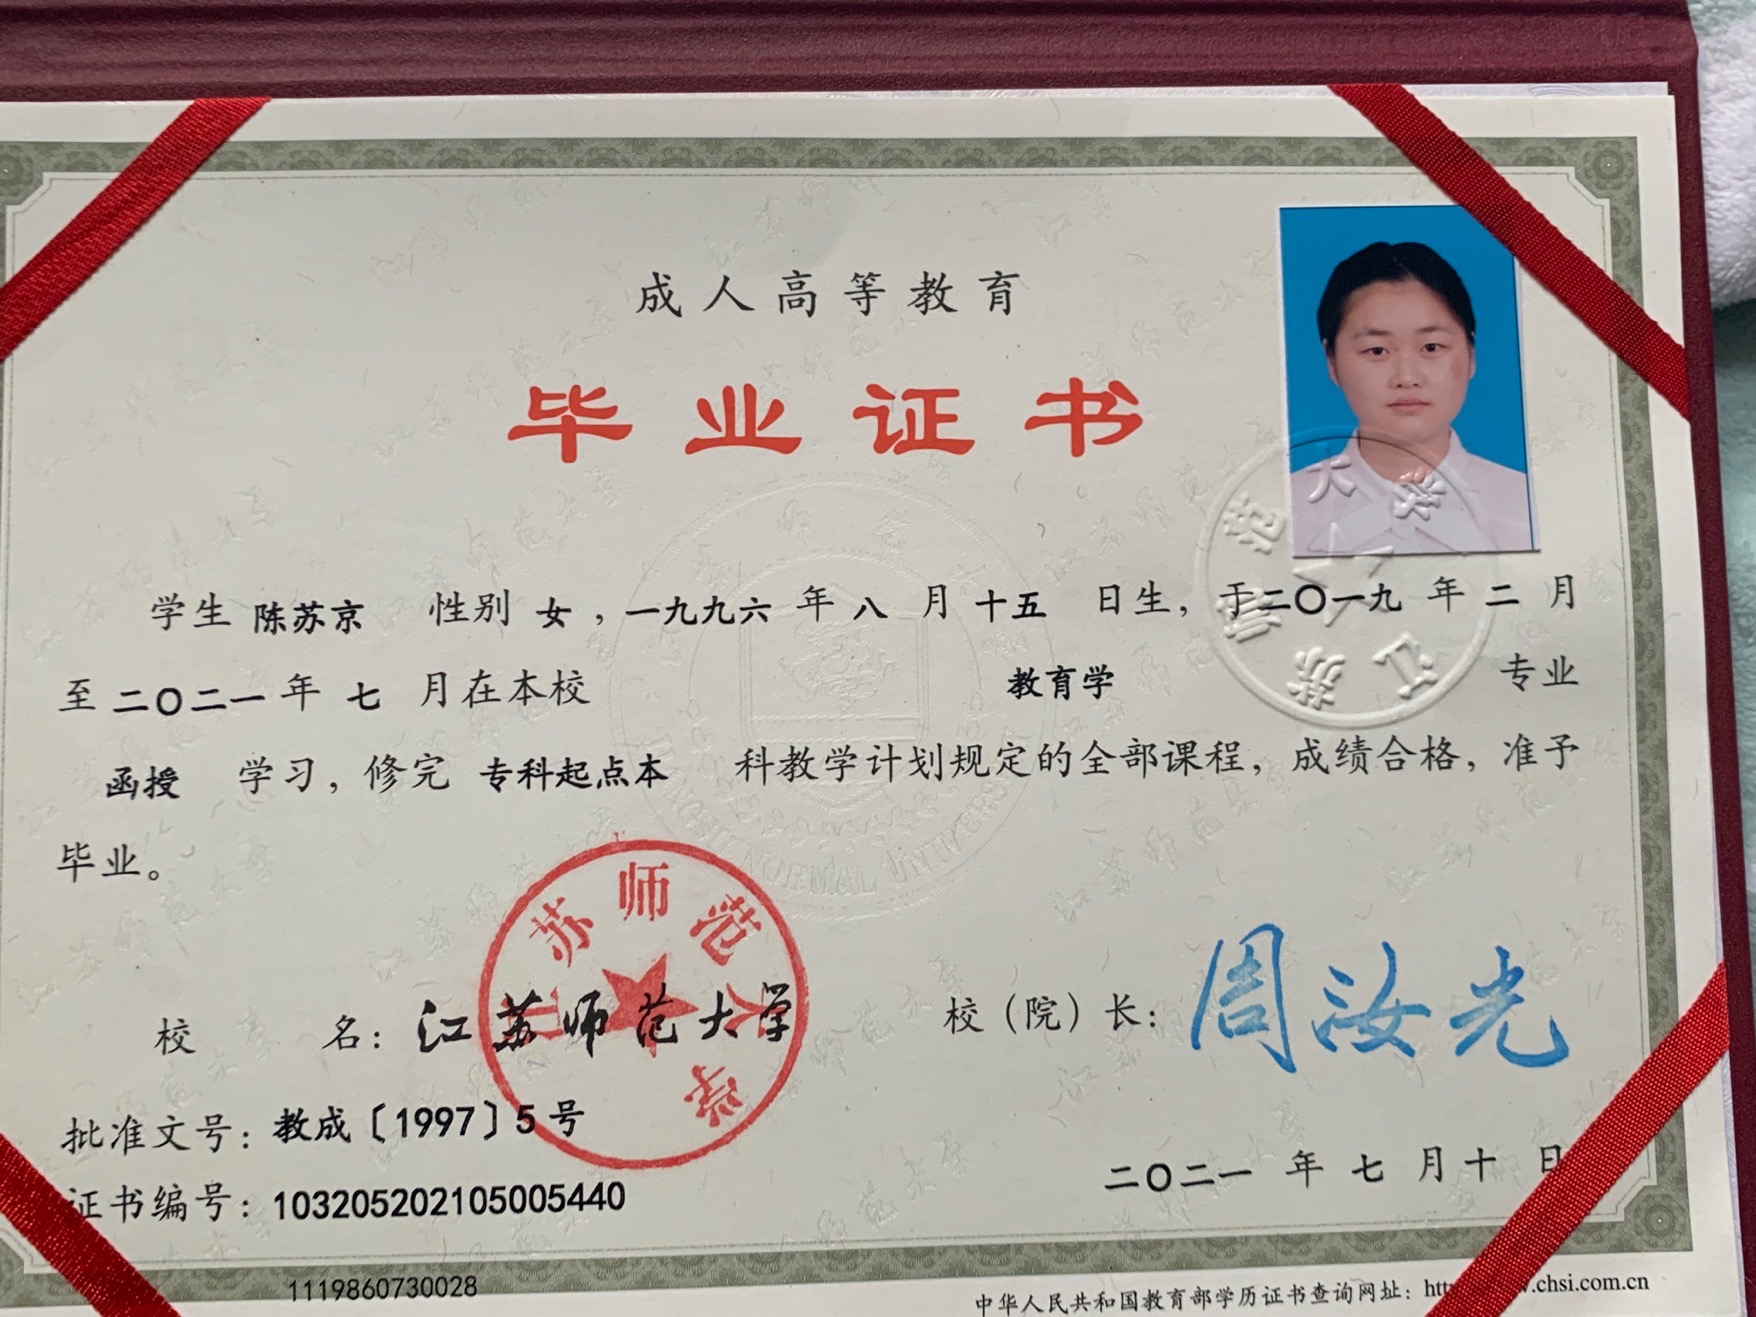 成人高等教育
毕业证书
学生 陈苏京 性别 女，一九九六 年 八 月 十五 日生，于二〇一九 年 二 月
至 二〇二一 年 七 月在本校 教育学 专业
函授 学习，修完 专科起点本 科教学计划规定的全部课程，成绩合格，准予
毕业。
校 名：江苏师范大学
校（院）长：周汝光
江苏师范大学
批准文号：教成〔1997〕5号
二〇二一 年 七 月 十 日
证书编号：103205202105005440
1119860730028
中华人民共和国教育部学历证书查询网址：htt .chsi.com.cn
江苏师范大学
JIANGSU NORMAL UNIVERSITY